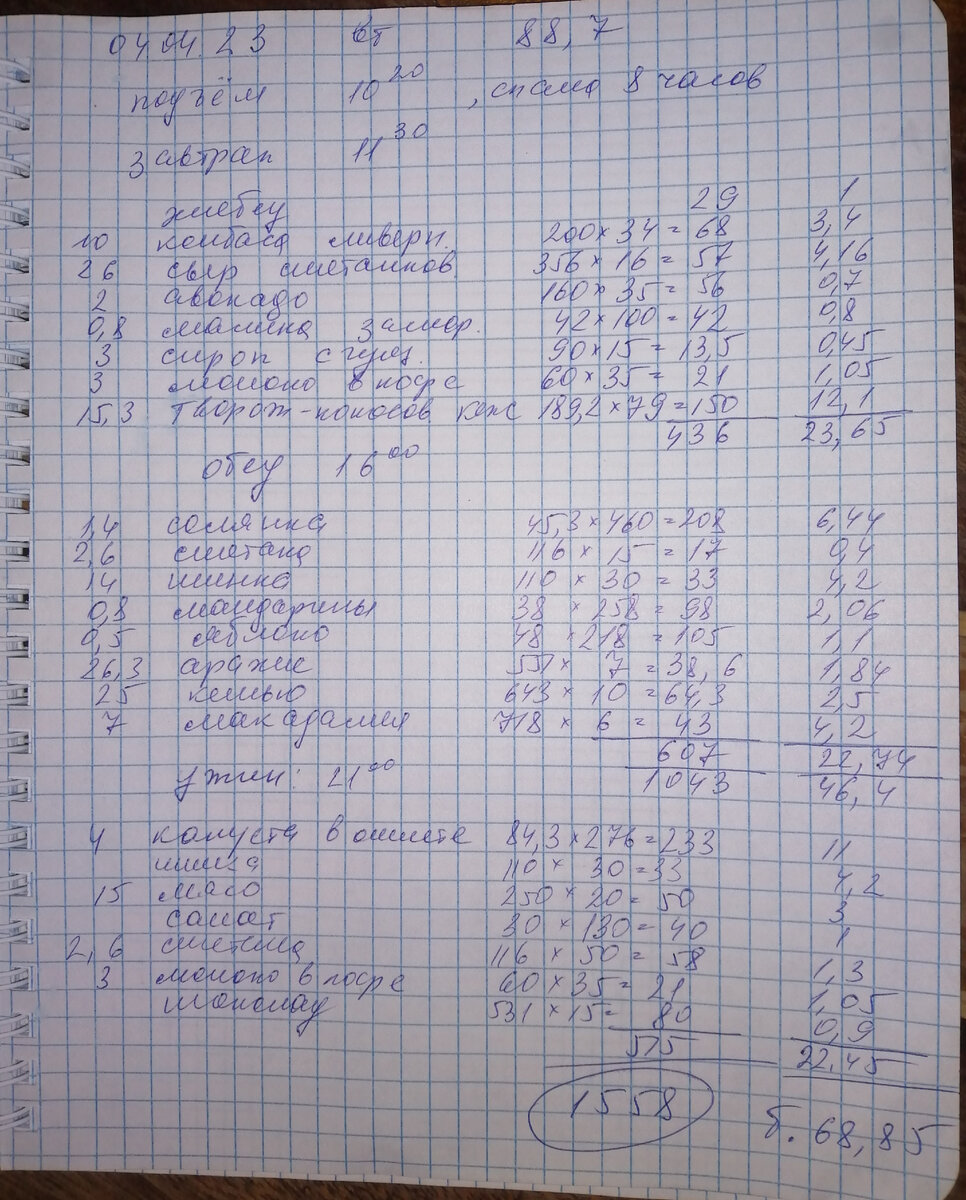 04.04.23 вт 88,7
подъём 10²⁰, спала 8 часов
завтрак 11³⁰
хлебцу 29 1
10 колбаса ливерн. 200 × 34 = 68 3,4
26 сыр сметанков 356 × 16 = 57 4,16
2 авокадо 160 × 35 = 56 0,7
0,8 малина замор. 42 × 100 = 42 0,8
3 сироп с гущ. 90 × 15 = 13,5 0,45
3 молоко в кофе 60 × 35 = 21 1,05
15,3 творож-кокосов. кекс 189,2 × 79 = 150 12,1
436 23,65
обед 16⁰⁰
1,4 солянка 45,3 × 460 = 208 6,44
2,6 сметана 116 × 15 = 17 0,4
14 шинка 110 × 30 = 33 4,2
0,8 мандарины 38 × 258 = 98 2,06
0,5 яблоко 48 × 218 = 105 1,1
26,3 арахис 551 × 7 = 38,6 1,84
25 кешью 643 × 10 = 64,3 2,5
7 макадамия 718 × 6 = 43 4,2
607 22,74
ужин: 21⁰⁰ 1043 46,4
4 капуста в омлете 84,3 × 276 = 233 11
шинка 110 × 30 = 33 4,2
15 мясо 250 × 20 = 50 3
салат 30 × 130 = 40 1
2,6 сметана 116 × 50 = 58 1,3
3 молоко в кофе 60 × 35 = 21 1,05
шоколад 531 × 15 = 80 0,9
515 22,45
1558 б. 68,85